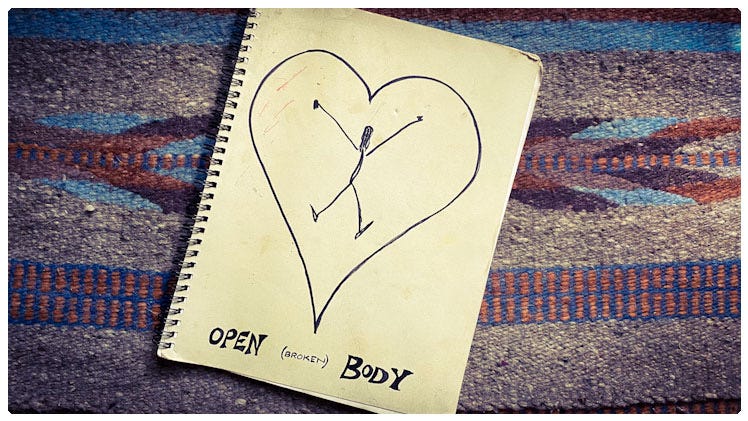 OPEN (BROKEN) BODY